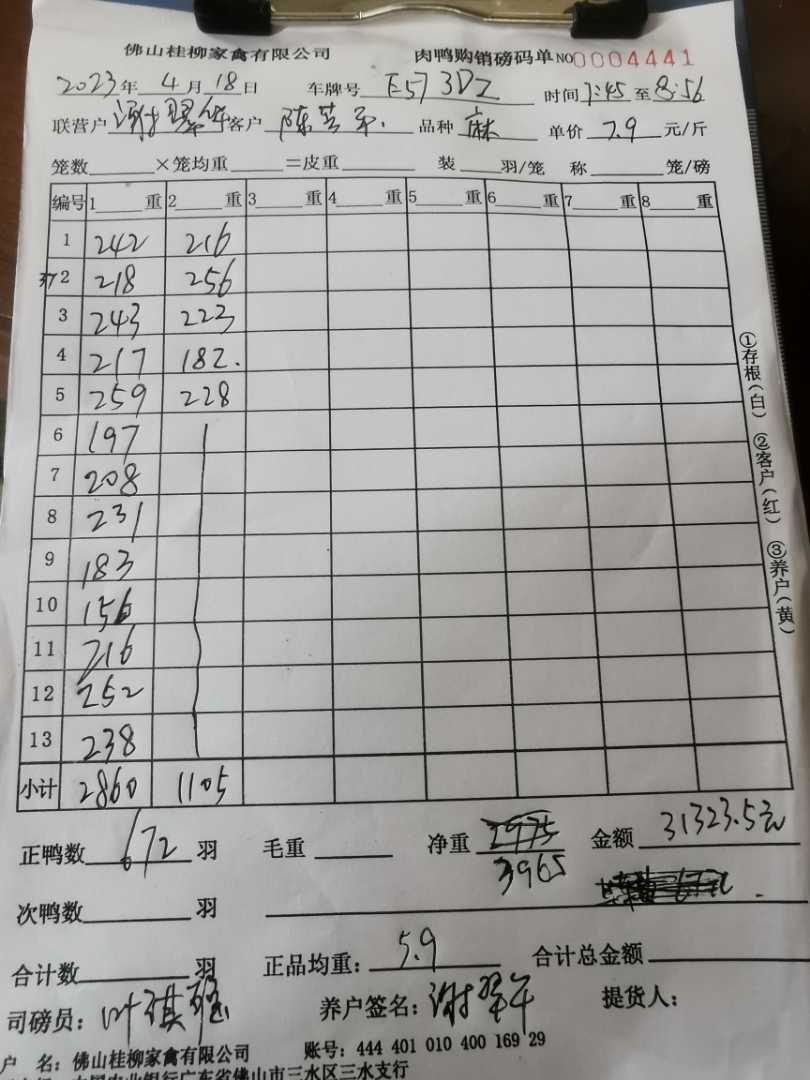 佛山桂柳家禽有限公司 肉鸭购销磅码单 NO0004441
2023年 4月 18日 车牌号 E573DZ 时间 7:45 至 8:56
联营户 谢翠午 客户 陈 品种 麻 单价 7.9 元/斤
笼数 ×笼均重 =皮重 装 羽/笼 称 笼/磅
编号 1 重 2 重 3 重 4 重 5 重 6 重 7 重 8 重
1 242 216
2 218 256
3 243 223
4 217 182.
5 259 228
6 197
7 208
8 231
9 183
10 156
11 216
12 252
13 238
小计 2860 1105
正鸭数 672 羽 毛重 净重 2975 金额 31323.5元
3965
次鸭数 羽
合计数 羽 正品均重: 5.9 合计总金额
司磅员: 叶琪 养户签名: 谢翠午 提货人:
户 名: 佛山桂柳家禽有限公司 账号: 444 401 010 400 169 29
农业银行广东省佛山市三水区三水支行
①存根(白) ②客户(红) ③养户(黄)